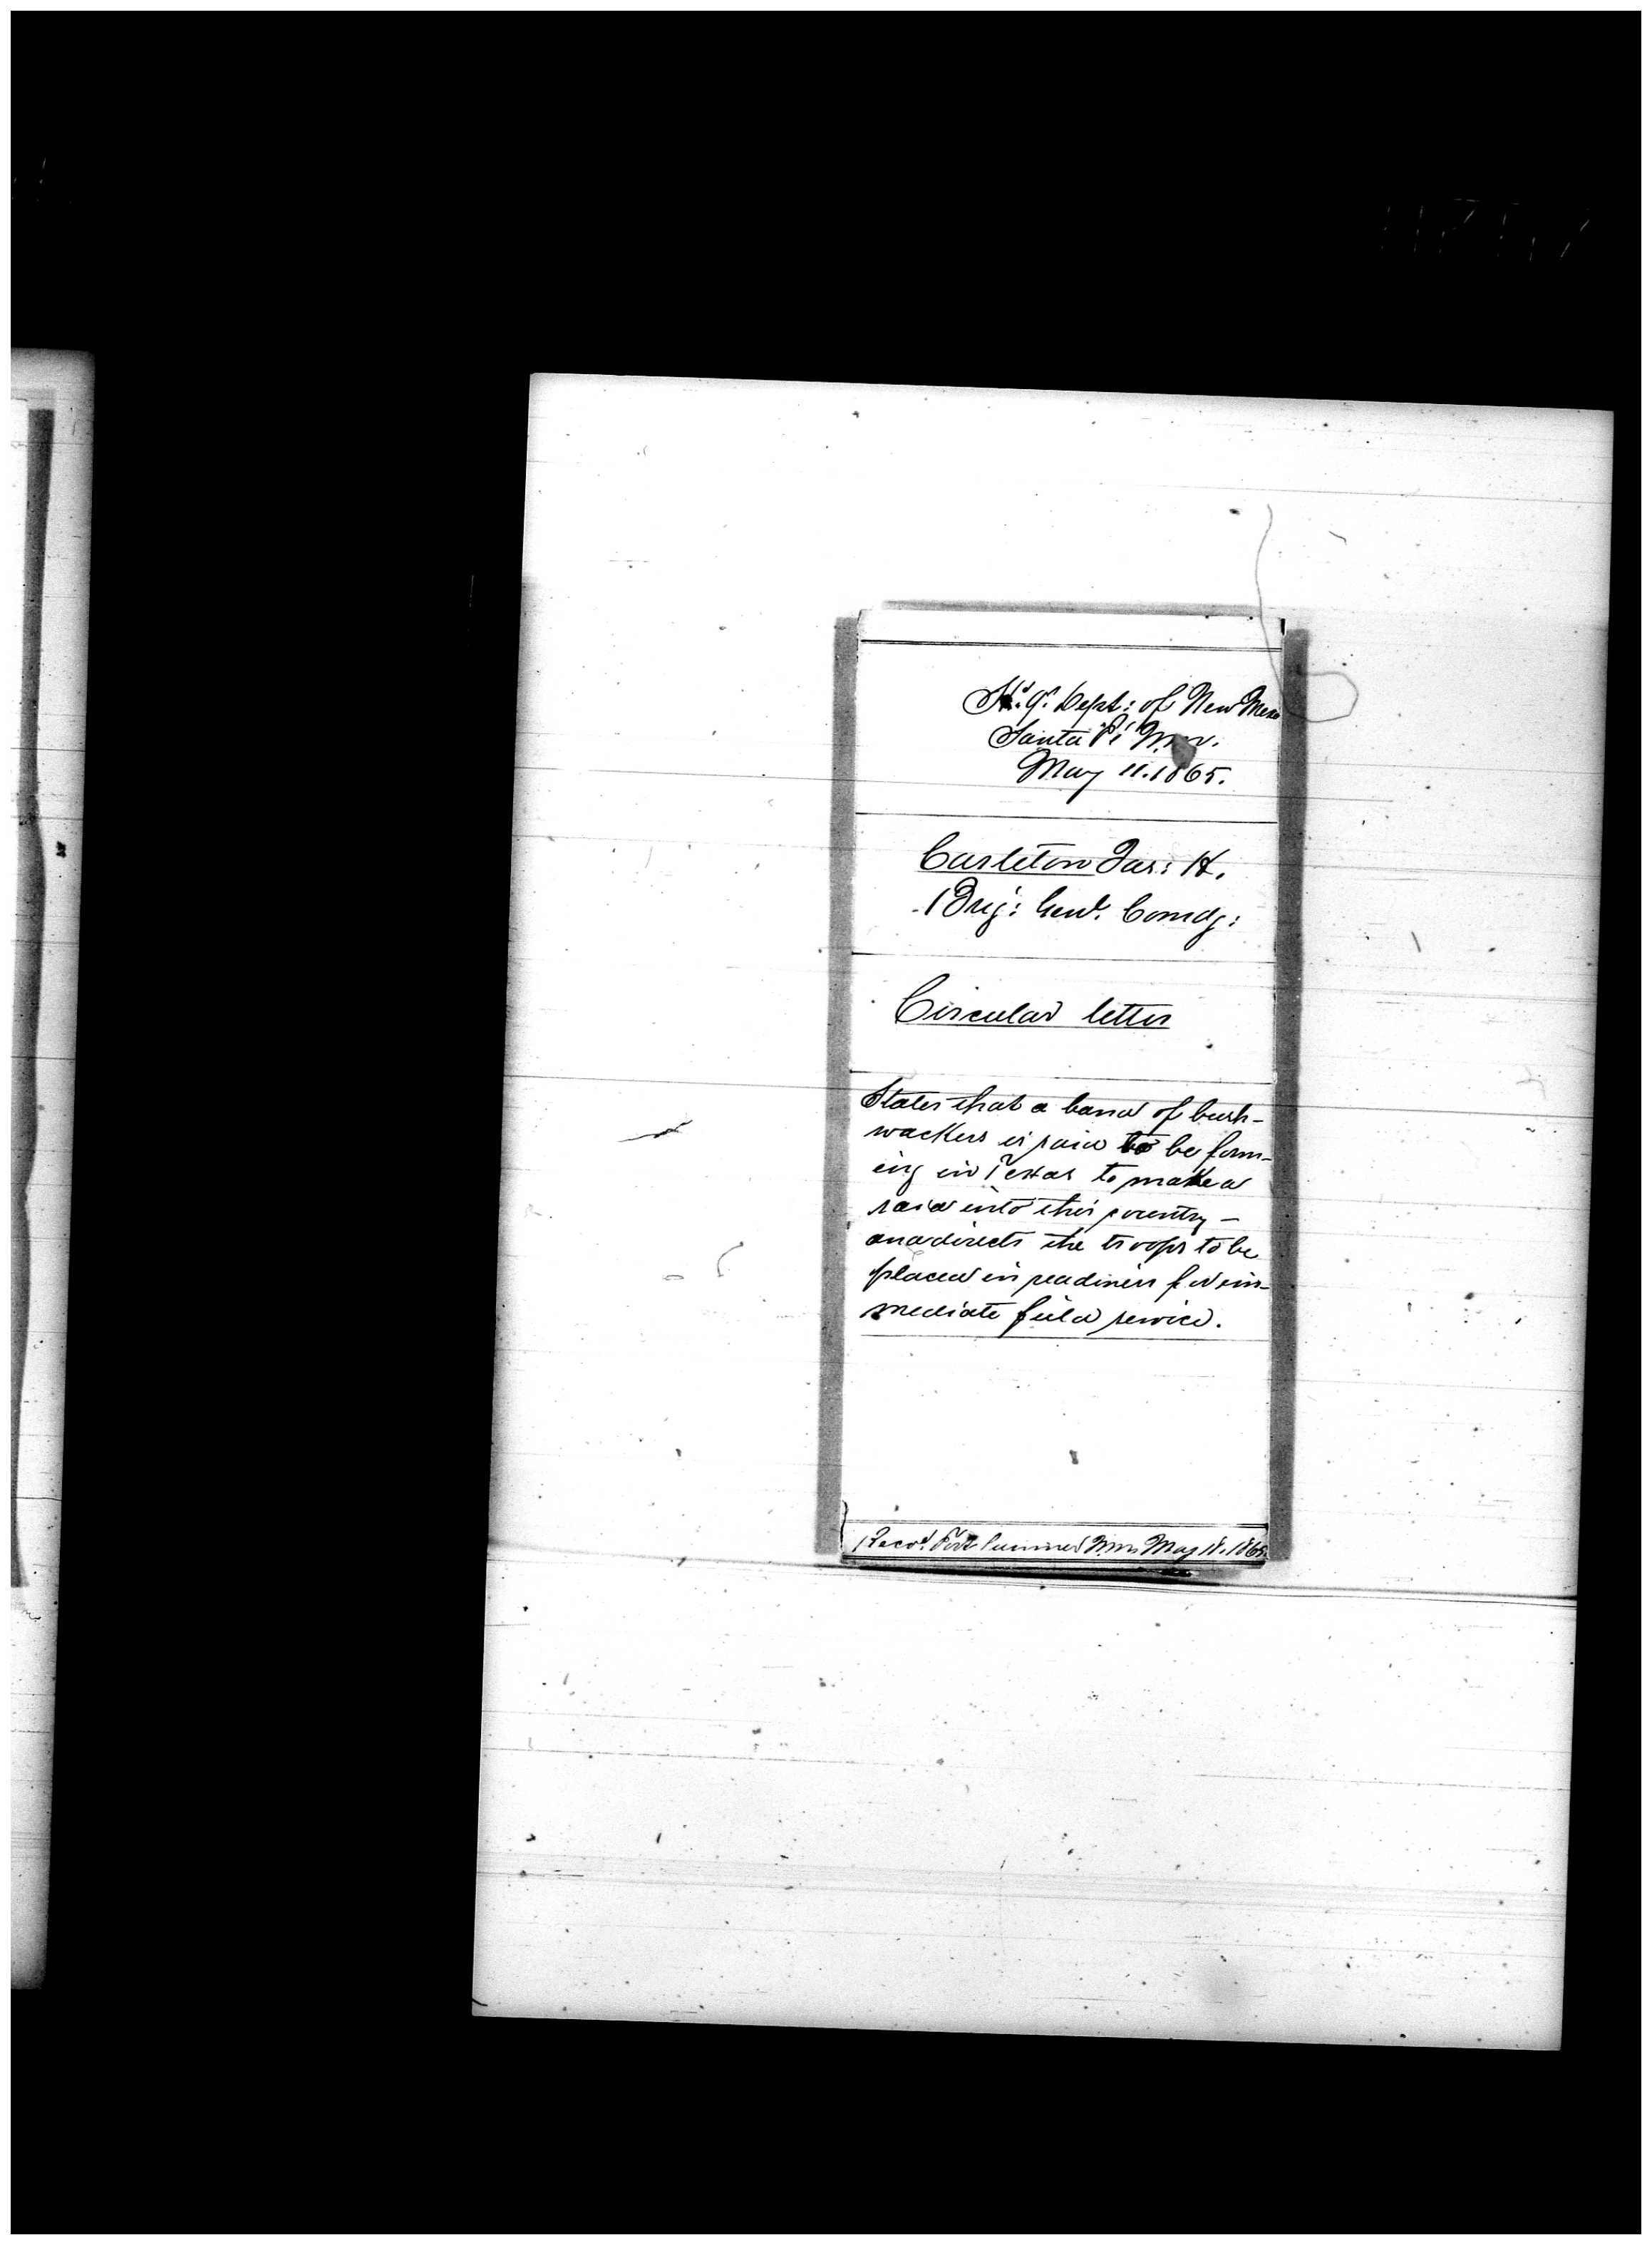 Hd. Qr. Dept: of New Mexo
Santa Fé N.M.
May 11. 1865.
Carleton Jas: H.
Brig: Genl. Comdg:
Circular letter
States that a band of bush-
wackers is said to be form-
ing in Texas to make a
raid into this country –
and directs the troops to be
placed in readiness for im-
mediate field service.
Recd. Fort Sumner N.M. May 18. 1865.